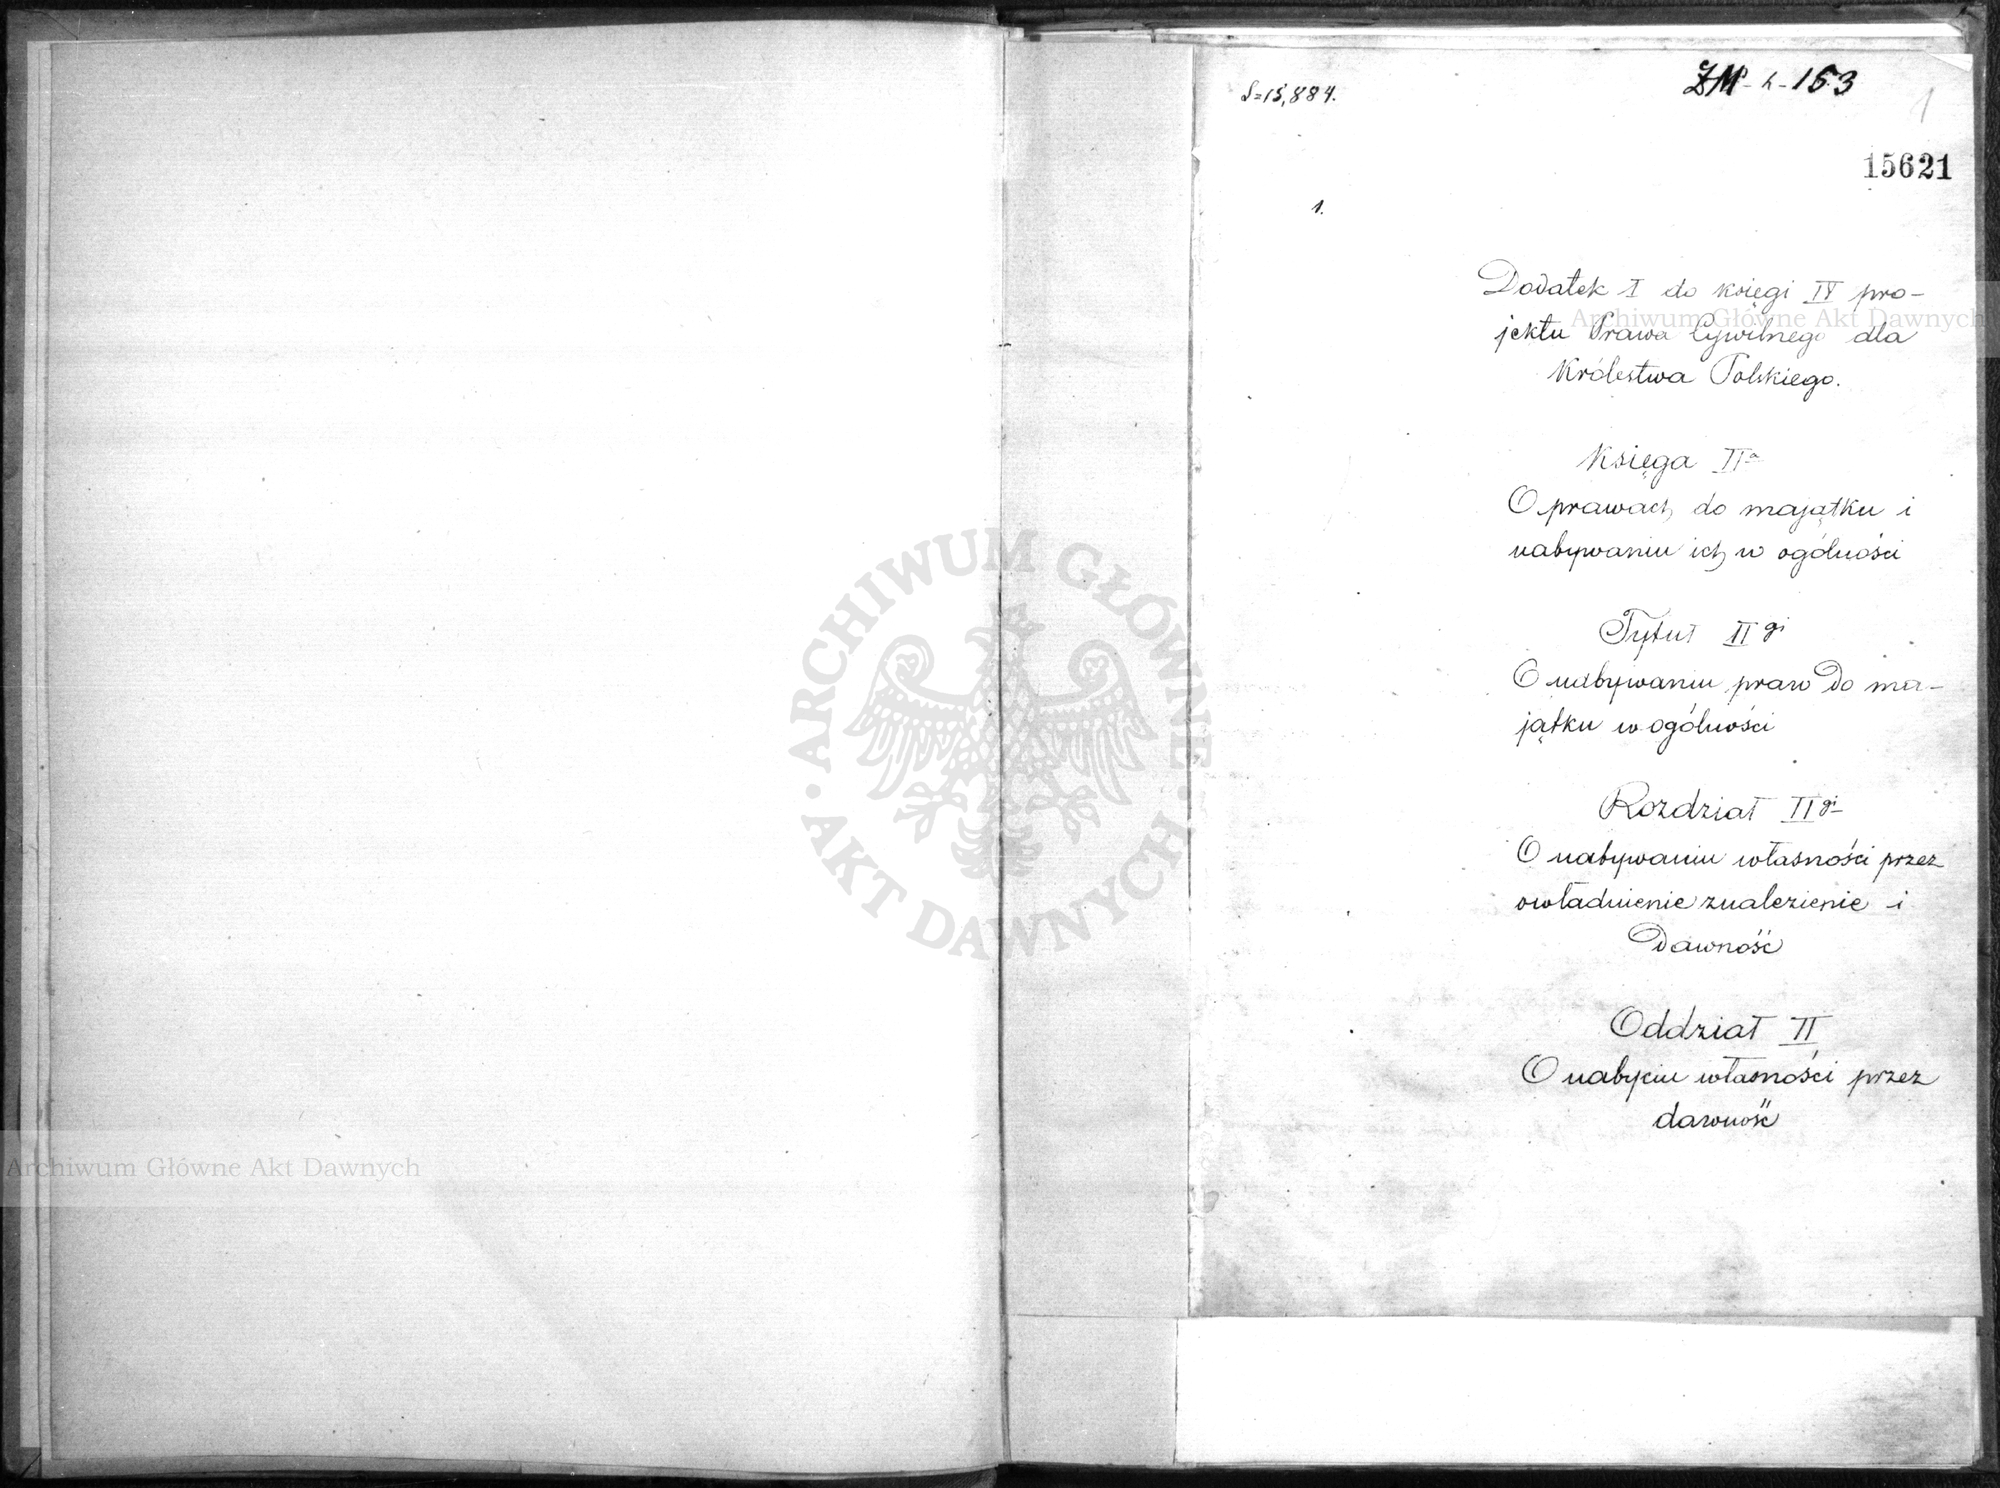 S=15,884.
ZM-h-153
1
15621
1.
Dodatek I do księgi IV pro-
jektu Prawa Cywilnego dla
Królestwa Polskiego.
Księga IIa
O prawach do majątku i
nabywaniu ich w ogólności
Tytuł IIgi
O nabywaniu praw do ma-
jątku w ogólności
Rozdział IIgi
O nabywaniu własności przez
owładnienie znalezienie i
Dawność
Oddział II
O nabyciu własności przez
dawność
ARCHIWUM GŁÓWNE
AKT DAWNYCH
Archiwum Główne Akt Dawnych
Archiwum Główne Akt Dawnych